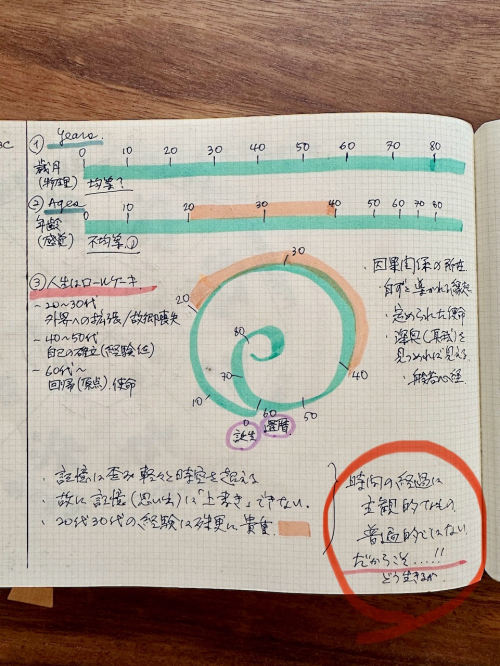 BC
① Years
0 10 20 30 40 50 60 70 80
歳月
(物理) 均等?
② Ages
0 10 20 30 40 50 60 70 80
年齢
(感覚) 不均等①
③ 人生はロールケーキ
- 20~30代
外界への拡張/故郷喪失
- 40~50代
自己の確立(経験値)
- 60代~
回帰(頂点)・使命
30
20
80
70
40
10
0 60 50
誕生 還暦
・因果関係の所在
・自ずと導かれる縁
・定められた使命
・深奥(真我)を
見つめれば見える
・般若心経
・記憶は歪み軽々と時空を超える
・故に記憶(思い出)は「上書き」できない。
・20代30代の経験は殊更に貴重
時間の経過は
主観的なもの
普遍的ではない
だからこそ....!!
どう生きるか